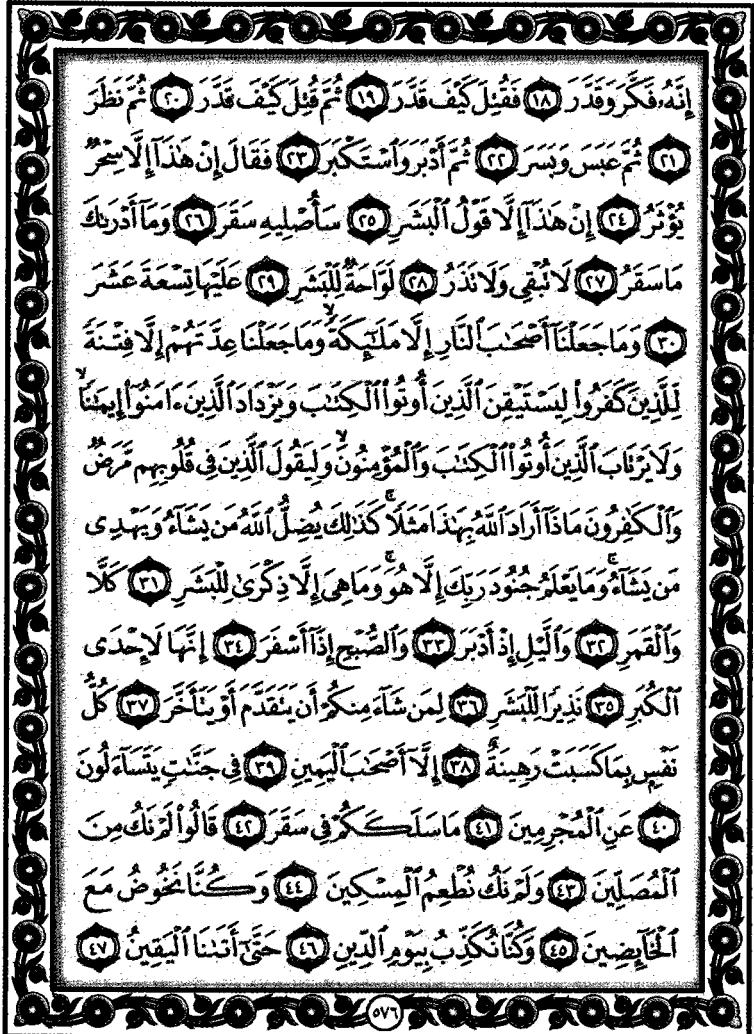 إِنَّهُۥ فَكَّرَ وَقَدَّرَ ١٨ فَقُتِلَ كَيْفَ قَدَّرَ ١٩ ثُمَّ قُتِلَ كَيْفَ قَدَّرَ ٢٠ ثُمَّ نَظَرَ
٢١ ثُمَّ عَبَسَ وَبَسَرَ ٢٢ ثُمَّ أَدْبَرَ وَٱسْتَكْبَرَ ٢٣ فَقَالَ إِنْ هَٰذَآ إِلَّا سِحْرٌ
يُؤْثَرُ ٢٤ إِنْ هَٰذَآ إِلَّا قَوْلُ ٱلْبَشَرِ ٢٥ سَأُصْلِيهِ سَقَرَ ٢٦ وَمَآ أَدْرَىٰكَ
مَا سَقَرُ ٢٧ لَا تُبْقِى وَلَا تَذَرُ ٢٨ لَوَّاحَةٌ لِّلْبَشَرِ ٢٩ عَلَيْهَا تِسْعَةَ عَشَرَ
٣٠ وَمَا جَعَلْنَآ أَصْحَٰبَ ٱلنَّارِ إِلَّا مَلَٰٓئِكَةًۙ وَمَا جَعَلْنَا عِدَّتَهُمْ إِلَّا فِتْنَةً
لِّلَّذِينَ كَفَرُوا۟ لِيَسْتَيْقِنَ ٱلَّذِينَ أُوتُوا۟ ٱلْكِتَٰبَ وَيَزْدَادَ ٱلَّذِينَ ءَامَنُوٓا۟ إِيمَٰنًاۙ
وَلَا يَرْتَابَ ٱلَّذِينَ أُوتُوا۟ ٱلْكِتَٰبَ وَٱلْمُؤْمِنُونَۙ وَلِيَقُولَ ٱلَّذِينَ فِى قُلُوبِهِم مَّرَضٌ
وَٱلْكَٰفِرُونَ مَاذَآ أَرَادَ ٱللَّهُ بِهَٰذَا مَثَلًاۚ كَذَٰلِكَ يُضِلُّ ٱللَّهُ مَن يَشَآءُ وَيَهْدِى
مَن يَشَآءُۚ وَمَا يَعْلَمُ جُنُودَ رَبِّكَ إِلَّا هُوَۚ وَمَا هِىَ إِلَّا ذِكْرَىٰ لِلْبَشَرِ ٣١ كَلَّا
وَٱلْقَمَرِ ٣٢ وَٱلَّيْلِ إِذْ أَدْبَرَ ٣٣ وَٱلصُّبْحِ إِذَآ أَسْفَرَ ٣٤ إِنَّهَا لَإِحْدَى
ٱلْكُبَرِ ٣٥ نَذِيرًا لِّلْبَشَرِ ٣٦ لِمَن شَآءَ مِنكُمْ أَن يَتَقَدَّمَ أَوْ يَتَأَخَّرَ ٣٧ كُلُّ
نَفْسٍۭ بِمَا كَسَبَتْ رَهِينَةٌ ٣٨ إِلَّآ أَصْحَٰبَ ٱلْيَمِينِ ٣٩ فِى جَنَّٰتٍ يَتَسَآءَلُونَ
٤٠ عَنِ ٱلْمُجْرِمِينَ ٤١ مَا سَلَكَكُمْ فِى سَقَرَ ٤٢ قَالُوا۟ لَمْ نَكُ مِنَ
ٱلْمُصَلِّينَ ٤٣ وَلَمْ نَكُ نُطْعِمُ ٱلْمِسْكِينَ ٤٤ وَكُنَّا نَخُوضُ مَعَ
ٱلْخَآئِضِينَ ٤٥ وَكُنَّا نُكَذِّبُ بِيَوْمِ ٱلدِّينِ ٤٦ حَتَّىٰٓ أَتَىٰنَا ٱلْيَقِينُ ٤٧
٥٧٦